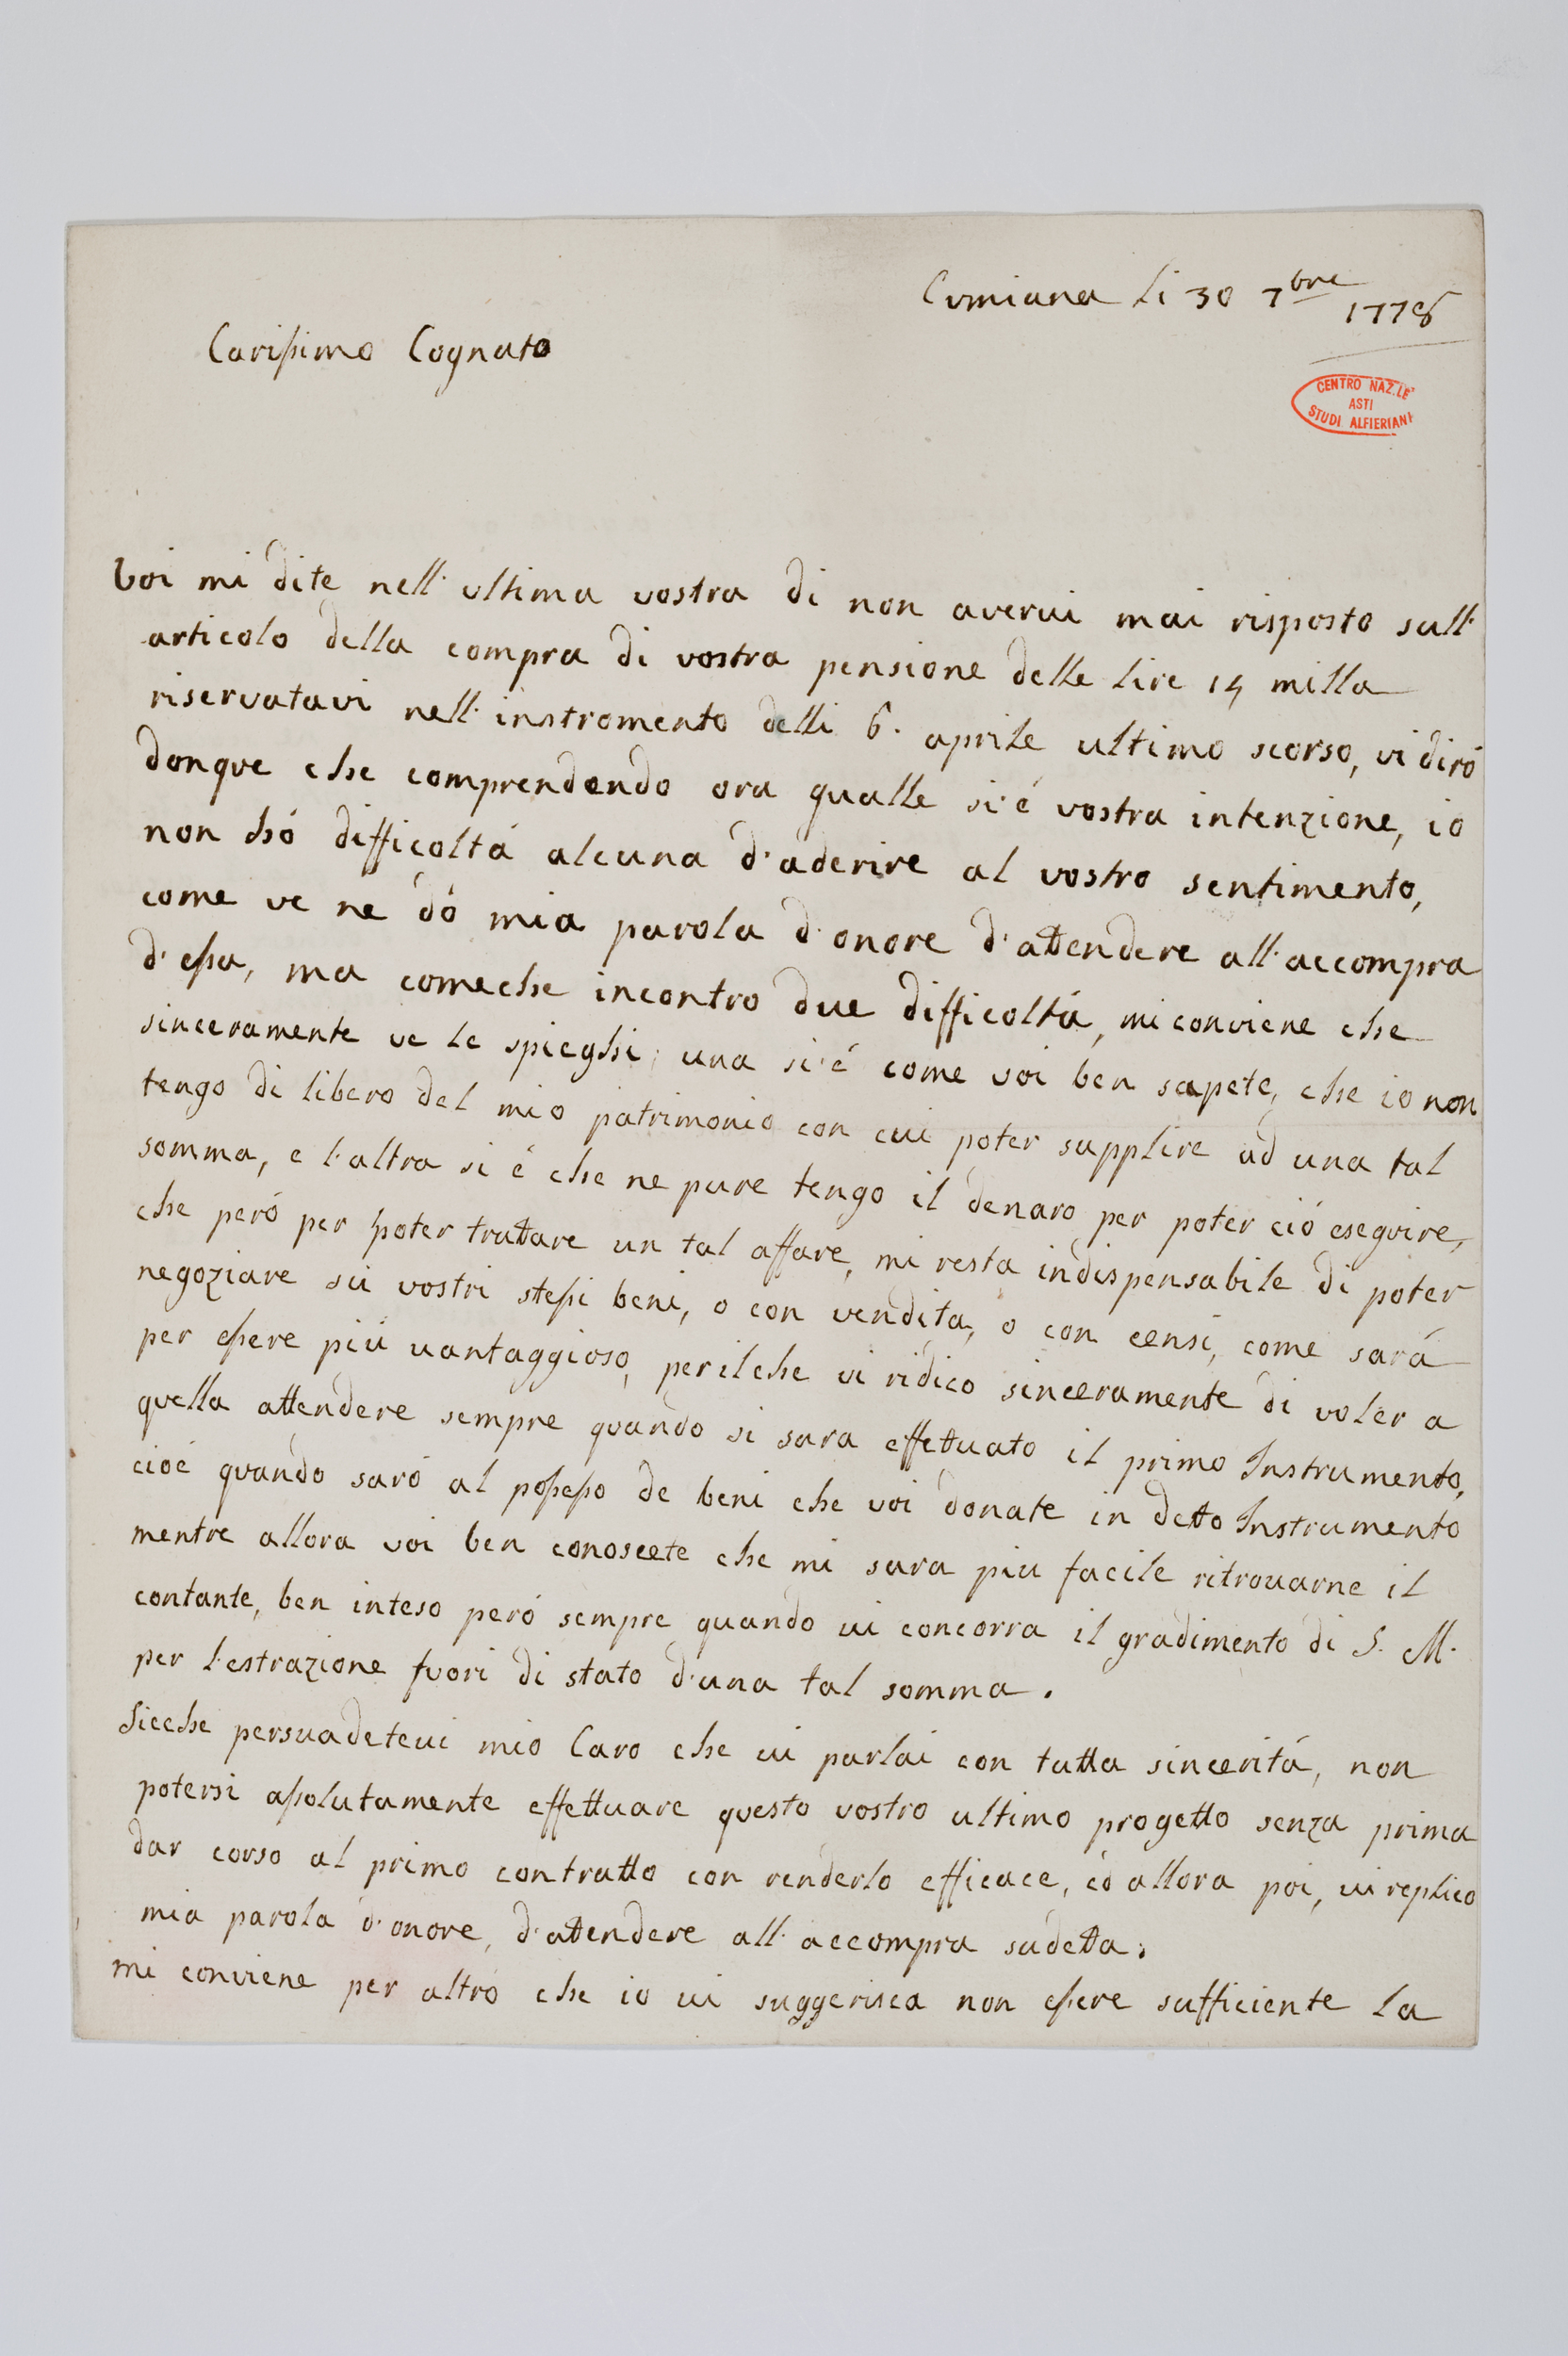 Cumiana li 30 7bre
1778
Carissimo Cognato
CENTRO NAZ.LE
ASTI
STUDI ALFIERIANI
Voi mi dite nell' ultima vostra di non avervi mai risposto sull'
articolo della compra di vostra pensione delle lire 14 milla
riservatavi nell' instromento delli 6. aprile ultimo scorso, vi diró
donque che comprendendo ora qualle si é vostra intenzione, io
non hó difficoltá alcuna d'aderire al vostro sentimento,
come ve ne dó mia parola d'onore d'attendere all' accompra
d'essa, ma comeche incontro due difficoltá, mi conviene che
sinceramente ve le spieghi; una si é come voi ben sapete, che io non
tengo di libero del mio patrimonio con cui poter supplire ad una tal
somma, e l'altra si é che ne pure tengo il denaro per poter ció eseguire,
che peró per poter trattare un tal affare, mi resta indispensabile di poter
negoziare sú vostri stessi beni, o con vendita, o con censi, come sará
per essere piú vantaggioso, perilche vi ridico sinceramente di voler a
quella attendere sempre quando si sara effettuato il primo Instrumento,
cioé quando saró al possesso de beni che voi donate in detto Instrumento
mentre allora voi ben conoscete che mi sara piu facile ritrovarne il
contante, ben inteso peró sempre quando vi concorra il gradimento di S. M.
per l'estrazione fuori di stato d'una tal somma.
Sicche persuadetevi mio Caro che vi parlai con tutta sinceritá, non
potersi assolutamente effettuare questo vostro ultimo progetto senza prima
dar corso al primo contratto con renderlo efficace, ed allora poi, vi replico
mia parola d'onore, d'attendere all' accompra sudetta.
mi conviene per altro che io vi suggerisca non essere sufficiente la